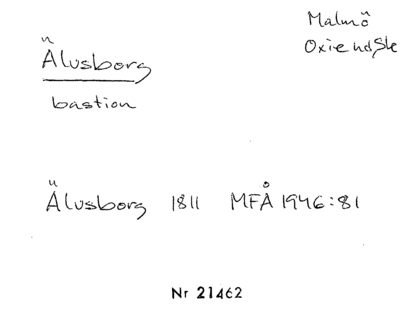 Malmö
Oxie hd, Sk
Älvsborg
bastion
Älvsborg 1811 MFÅ 1946:81
Nr 21462